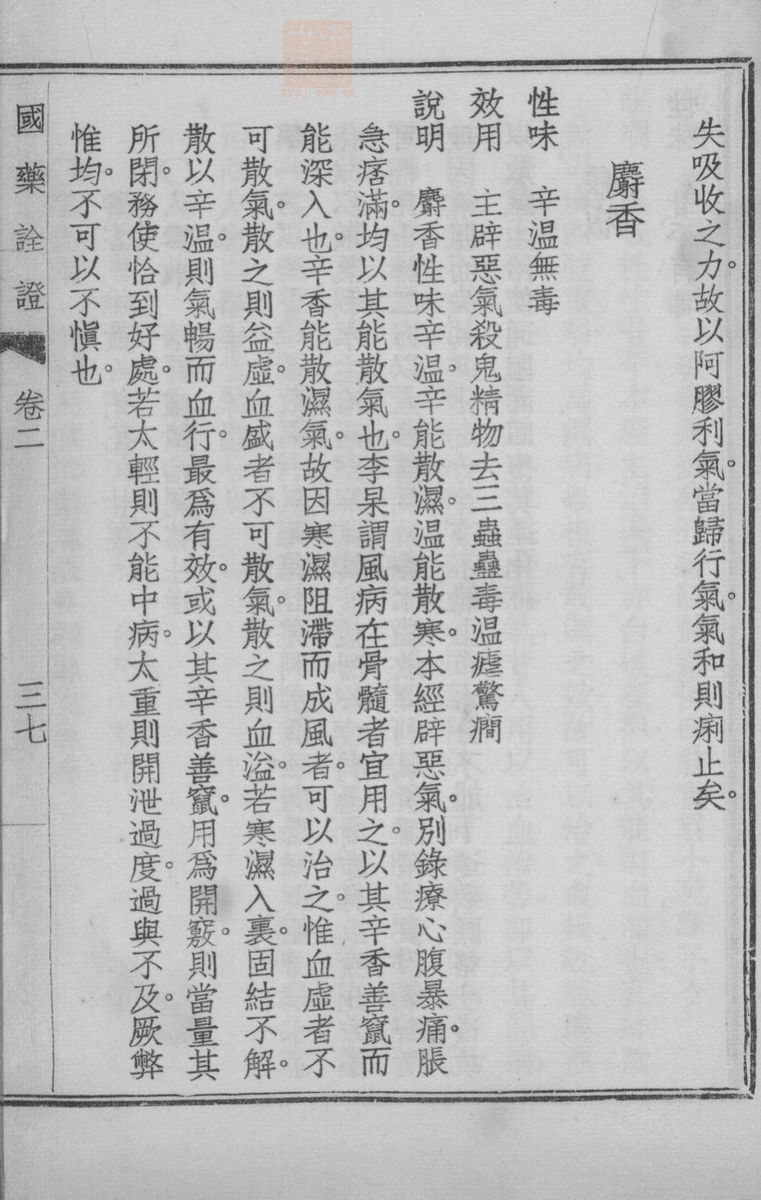 失吸收之力。故以阿膠利氣。當歸行氣。氣和則痢止矣。
麝香
性味　辛温無毒
效用　主辟惡氣殺鬼精物去三蟲蠱毒温瘧驚癇
說明　麝香性味辛温。辛能散濕。温能散寒。本經辟惡氣。別錄療心腹暴痛。脹
急痞滿。均以其能散氣也。李杲謂風病在骨髓者宜用之。以其辛香善竄而
能深入也。辛香能散濕氣。故因寒濕阻滯而成風者。可以治之。惟血虛者不
可散氣。散之則益虛。血盛者不可散氣。散之則血溢。若寒濕入裏。固結不解。
散以辛温。則氣暢而血行。最爲有效。或以其辛香善竄。用爲開竅。則當量其
所閉。務使恰到好處。若太輕則不能中病。太重則開泄過度。過與不及。厥弊
惟均。不可以不愼也。
國藥詮證　卷二　三七